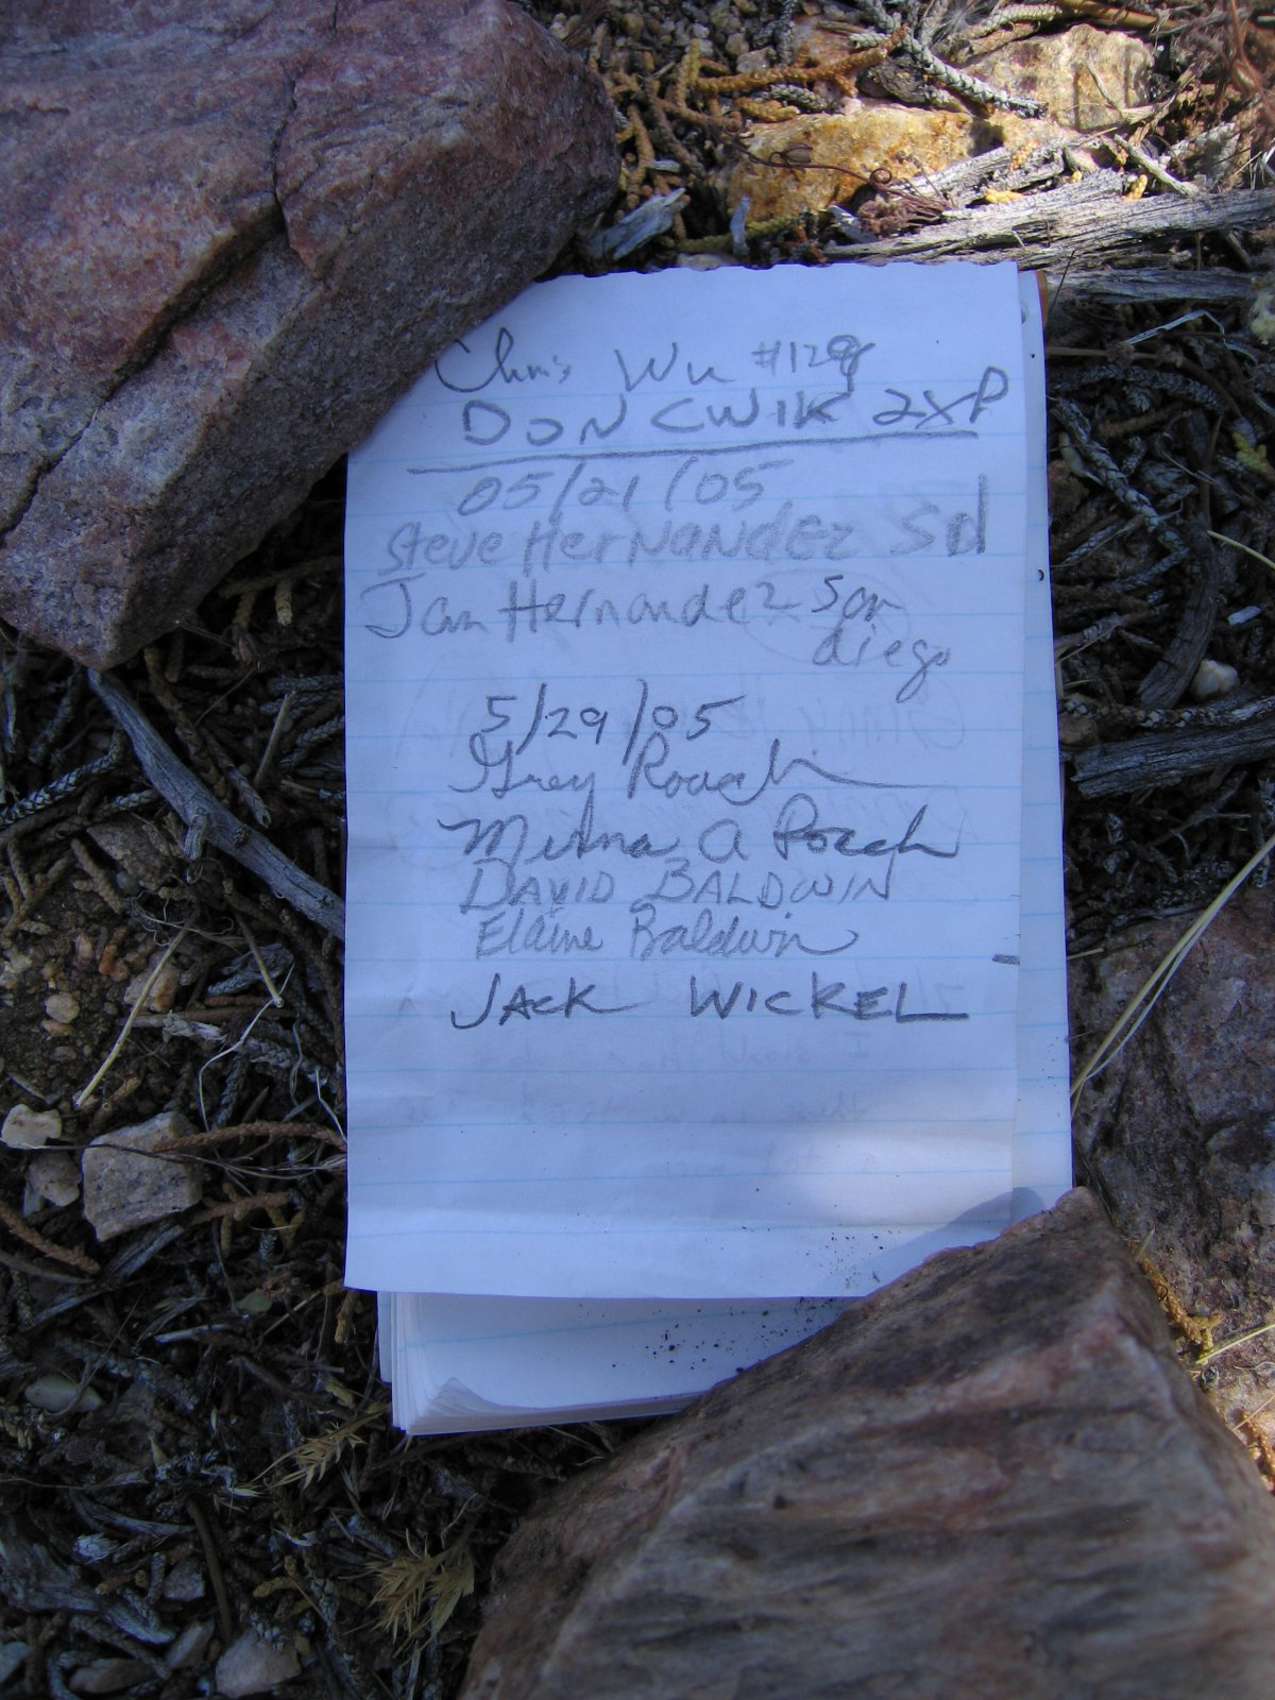 Chris Wu #129
DON CWIK 2XP
05/21/05
Steve HerNANdez Sd
Jan Hernandez San
diego
5/29/05
Greg Roach
Mirna A Roach
DAVID BALDWIN
Elaine Baldwin
JACK WICKEL